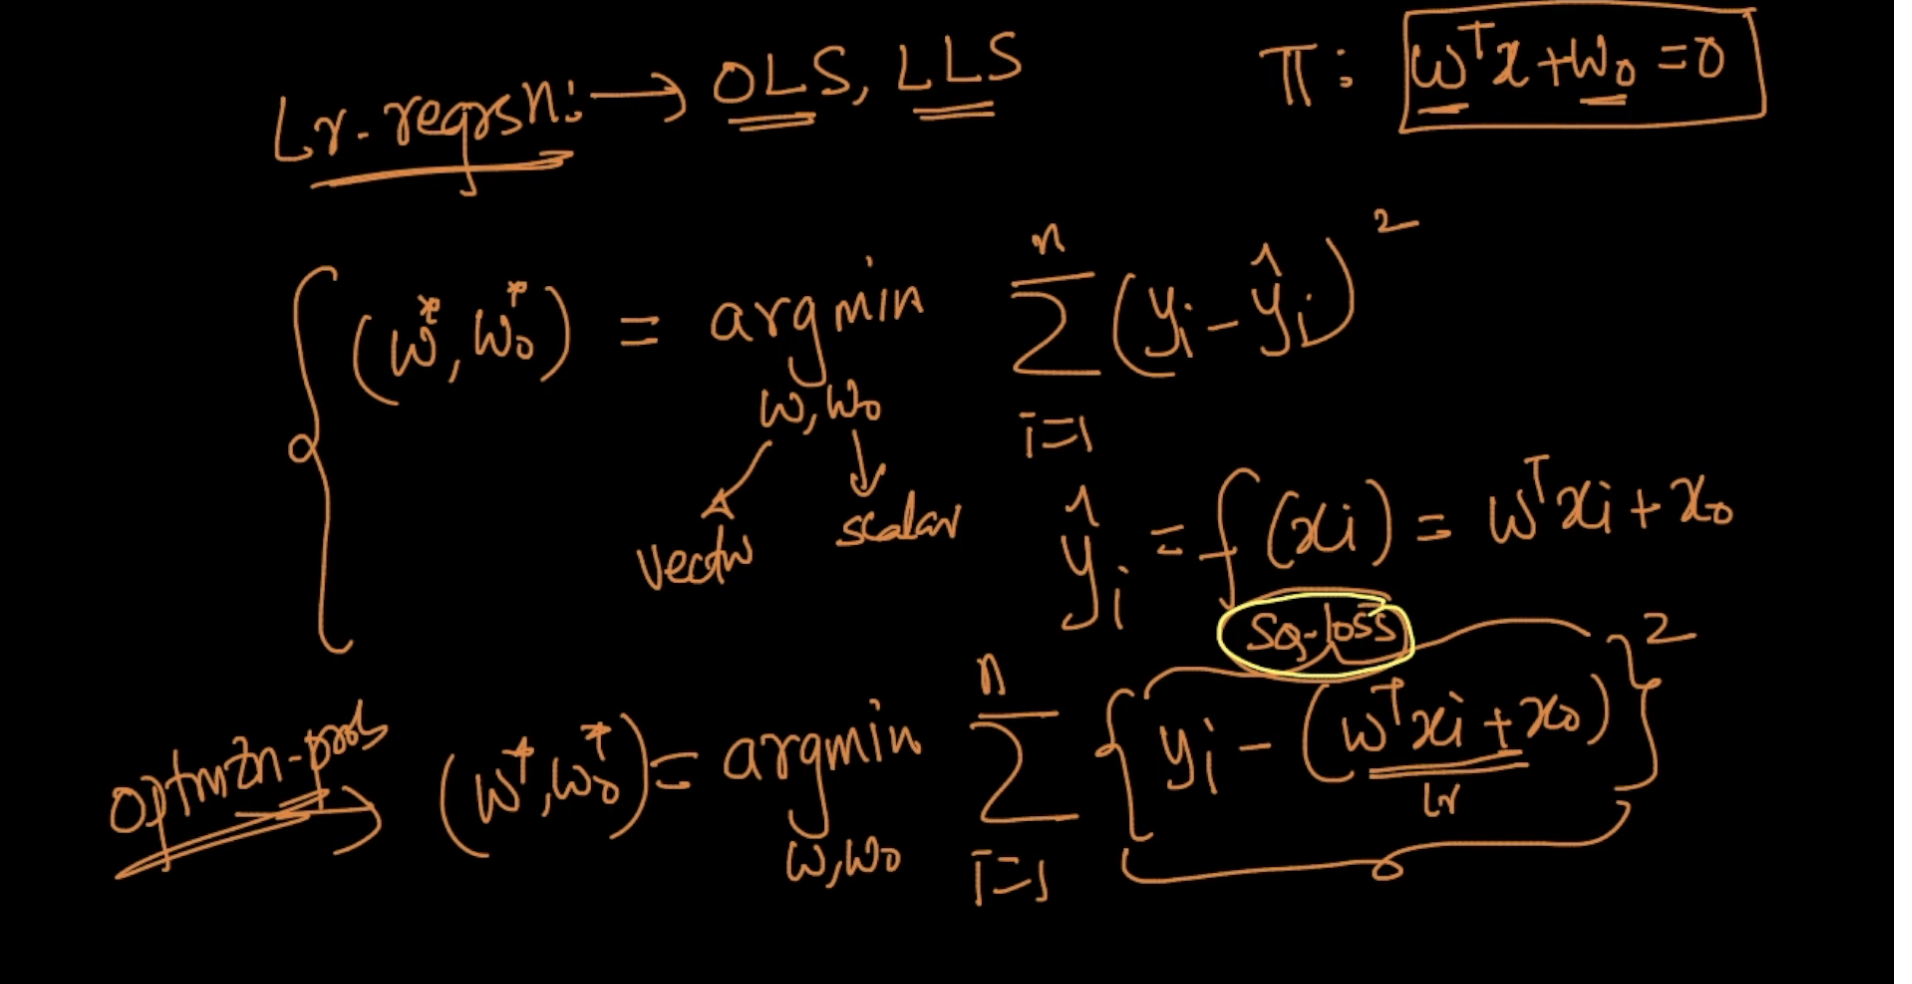 Lr. regrsn: → OLS, LLS
π: wᵀx + w₀ = 0
(w*, w₀*) = argmin_{w, w₀} ∑_{i=1}^{n} (yᵢ - ŷᵢ)²
vector scalar
ŷᵢ = f(xᵢ) = wᵀxᵢ + x₀
sq-loss
optmzn-prob → (w*, w₀*) = argmin_{w, w₀} ∑_{i=1}^{n} {yᵢ - (wᵀxᵢ + x₀)}²
Lr